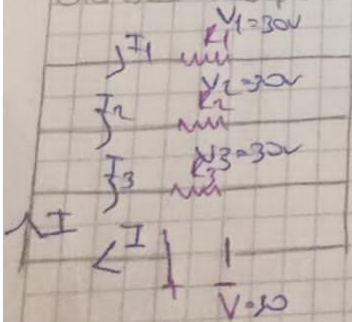 V1=30V
I1 R1
V2=30V
I2 R2
V3=30V
I3 R3
I
I
V=30